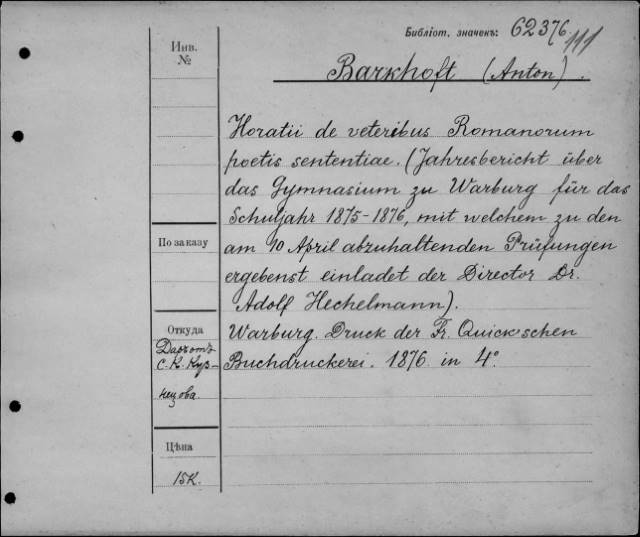 Библіот. значекъ: 62376
111
Инв.
№
Barkhoft (Anton).
Horatii de veteribus Romanorum
poetis sententiae. (Jahresbericht über
das Gymnasium zu Warburg für das
Schuljahr 1875-1876, mit welchem zu den
am 10 April abzuhaltenden Prüfungen
ergebenst einladet der Director Dr.
Adolf Hechelmann).
Warburg. Druck der Fr. Quick'schen
Buchdruckerei. 1876. in 4°.
По заказу
Откуда
Даръ отъ
С. К. Куз-
нецова.
Цѣна
15к.